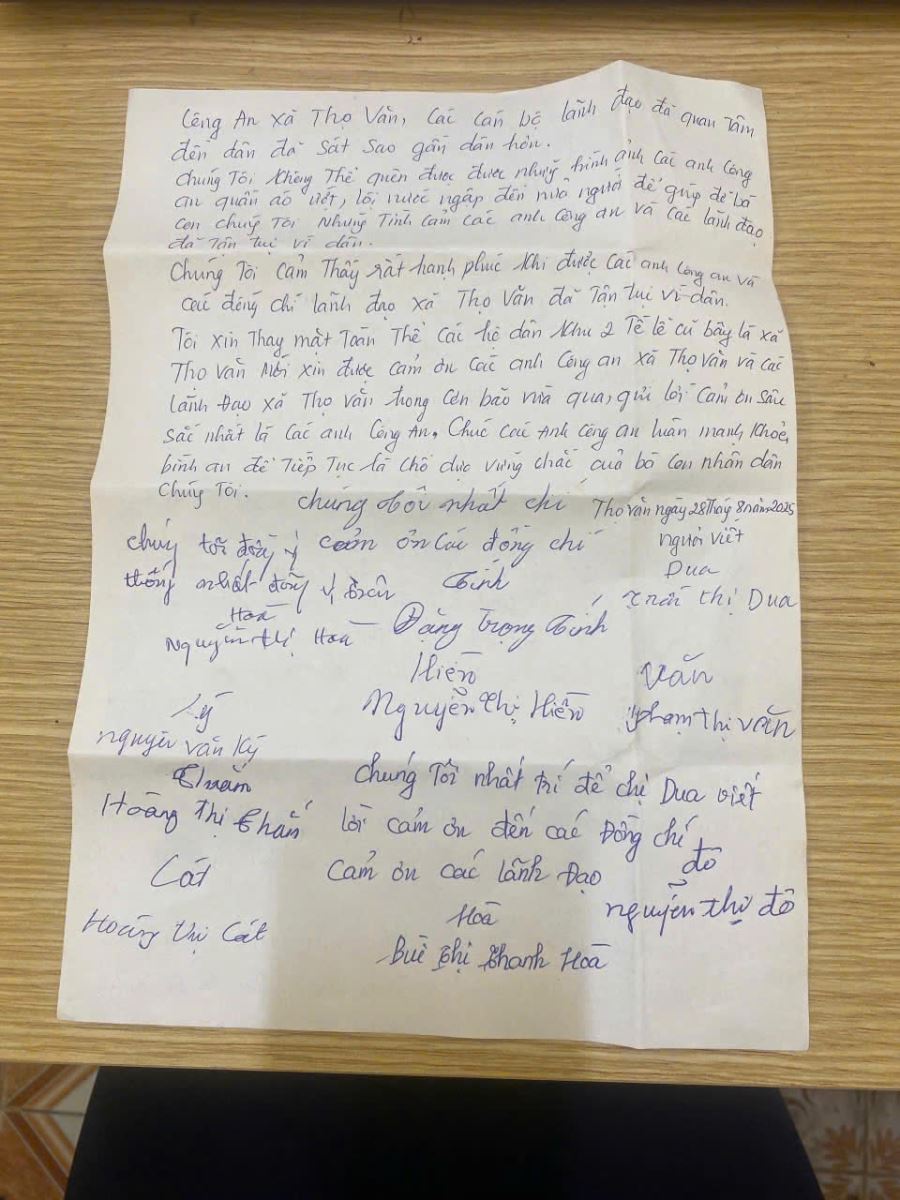 Công An xã Thọ Văn, các cán bộ lãnh đạo đã quan tâm
đến dân đã sát sao gần dân hơn.
Chúng Tôi không Thể quên được được những hình ảnh các anh công
an quần áo ướt, lội nước ngập đến nửa người để giúp đỡ bà
con chúng Tôi Những Tình cảm các anh công an và các lãnh đạo
đã tận tụi vì dân.
Chúng Tôi cảm Thấy rất hạnh phúc khi được các anh công an và
các đồng chí lãnh đạo xã Thọ Văn đã Tận tụi vì dân.
Tôi xin Thay mặt Toàn Thể các hộ dân khu 2 Tề lễ cũ bây là xã
Thọ văn Mới xin được cảm ơn các anh công an xã Thọ văn và các
lãnh Đạo xã Thọ văn trong cơn bão vừa qua, gửi lời cảm ơn sâu
sắc nhất là các anh công An. Chúc các Anh công an luôn mạnh khoẻ,
bình an để Tiếp Tục là chỗ dựa vững chắc của bà con nhân dân
Chúng Tôi.
chúng tôi nhất chí
Thọ văn ngày 28 Thág 8 năm 2025
chúg tôi đồg ý cảm ơn các đồng chí
người viết
thốg nhất đồg ý
Tính
Dua
Hoà
trần thị Dua
Nguyễn thị Hoà
Đặng Trọng Tính
Hiền
Văn
Nguyễn Thị Hiền
phạm thị văn
Ký
nguyễn văn Ký
Chúng Tôi nhất trí để chị Dua viết
Hoàng Thị
lời cảm ơn đến các Đồng chí
Cát
cảm ơn các lãnh Đạo
đô
nguyễn thị đô
Hoàng thị Cát
Hoà
Bùi Thị Thanh Hoà